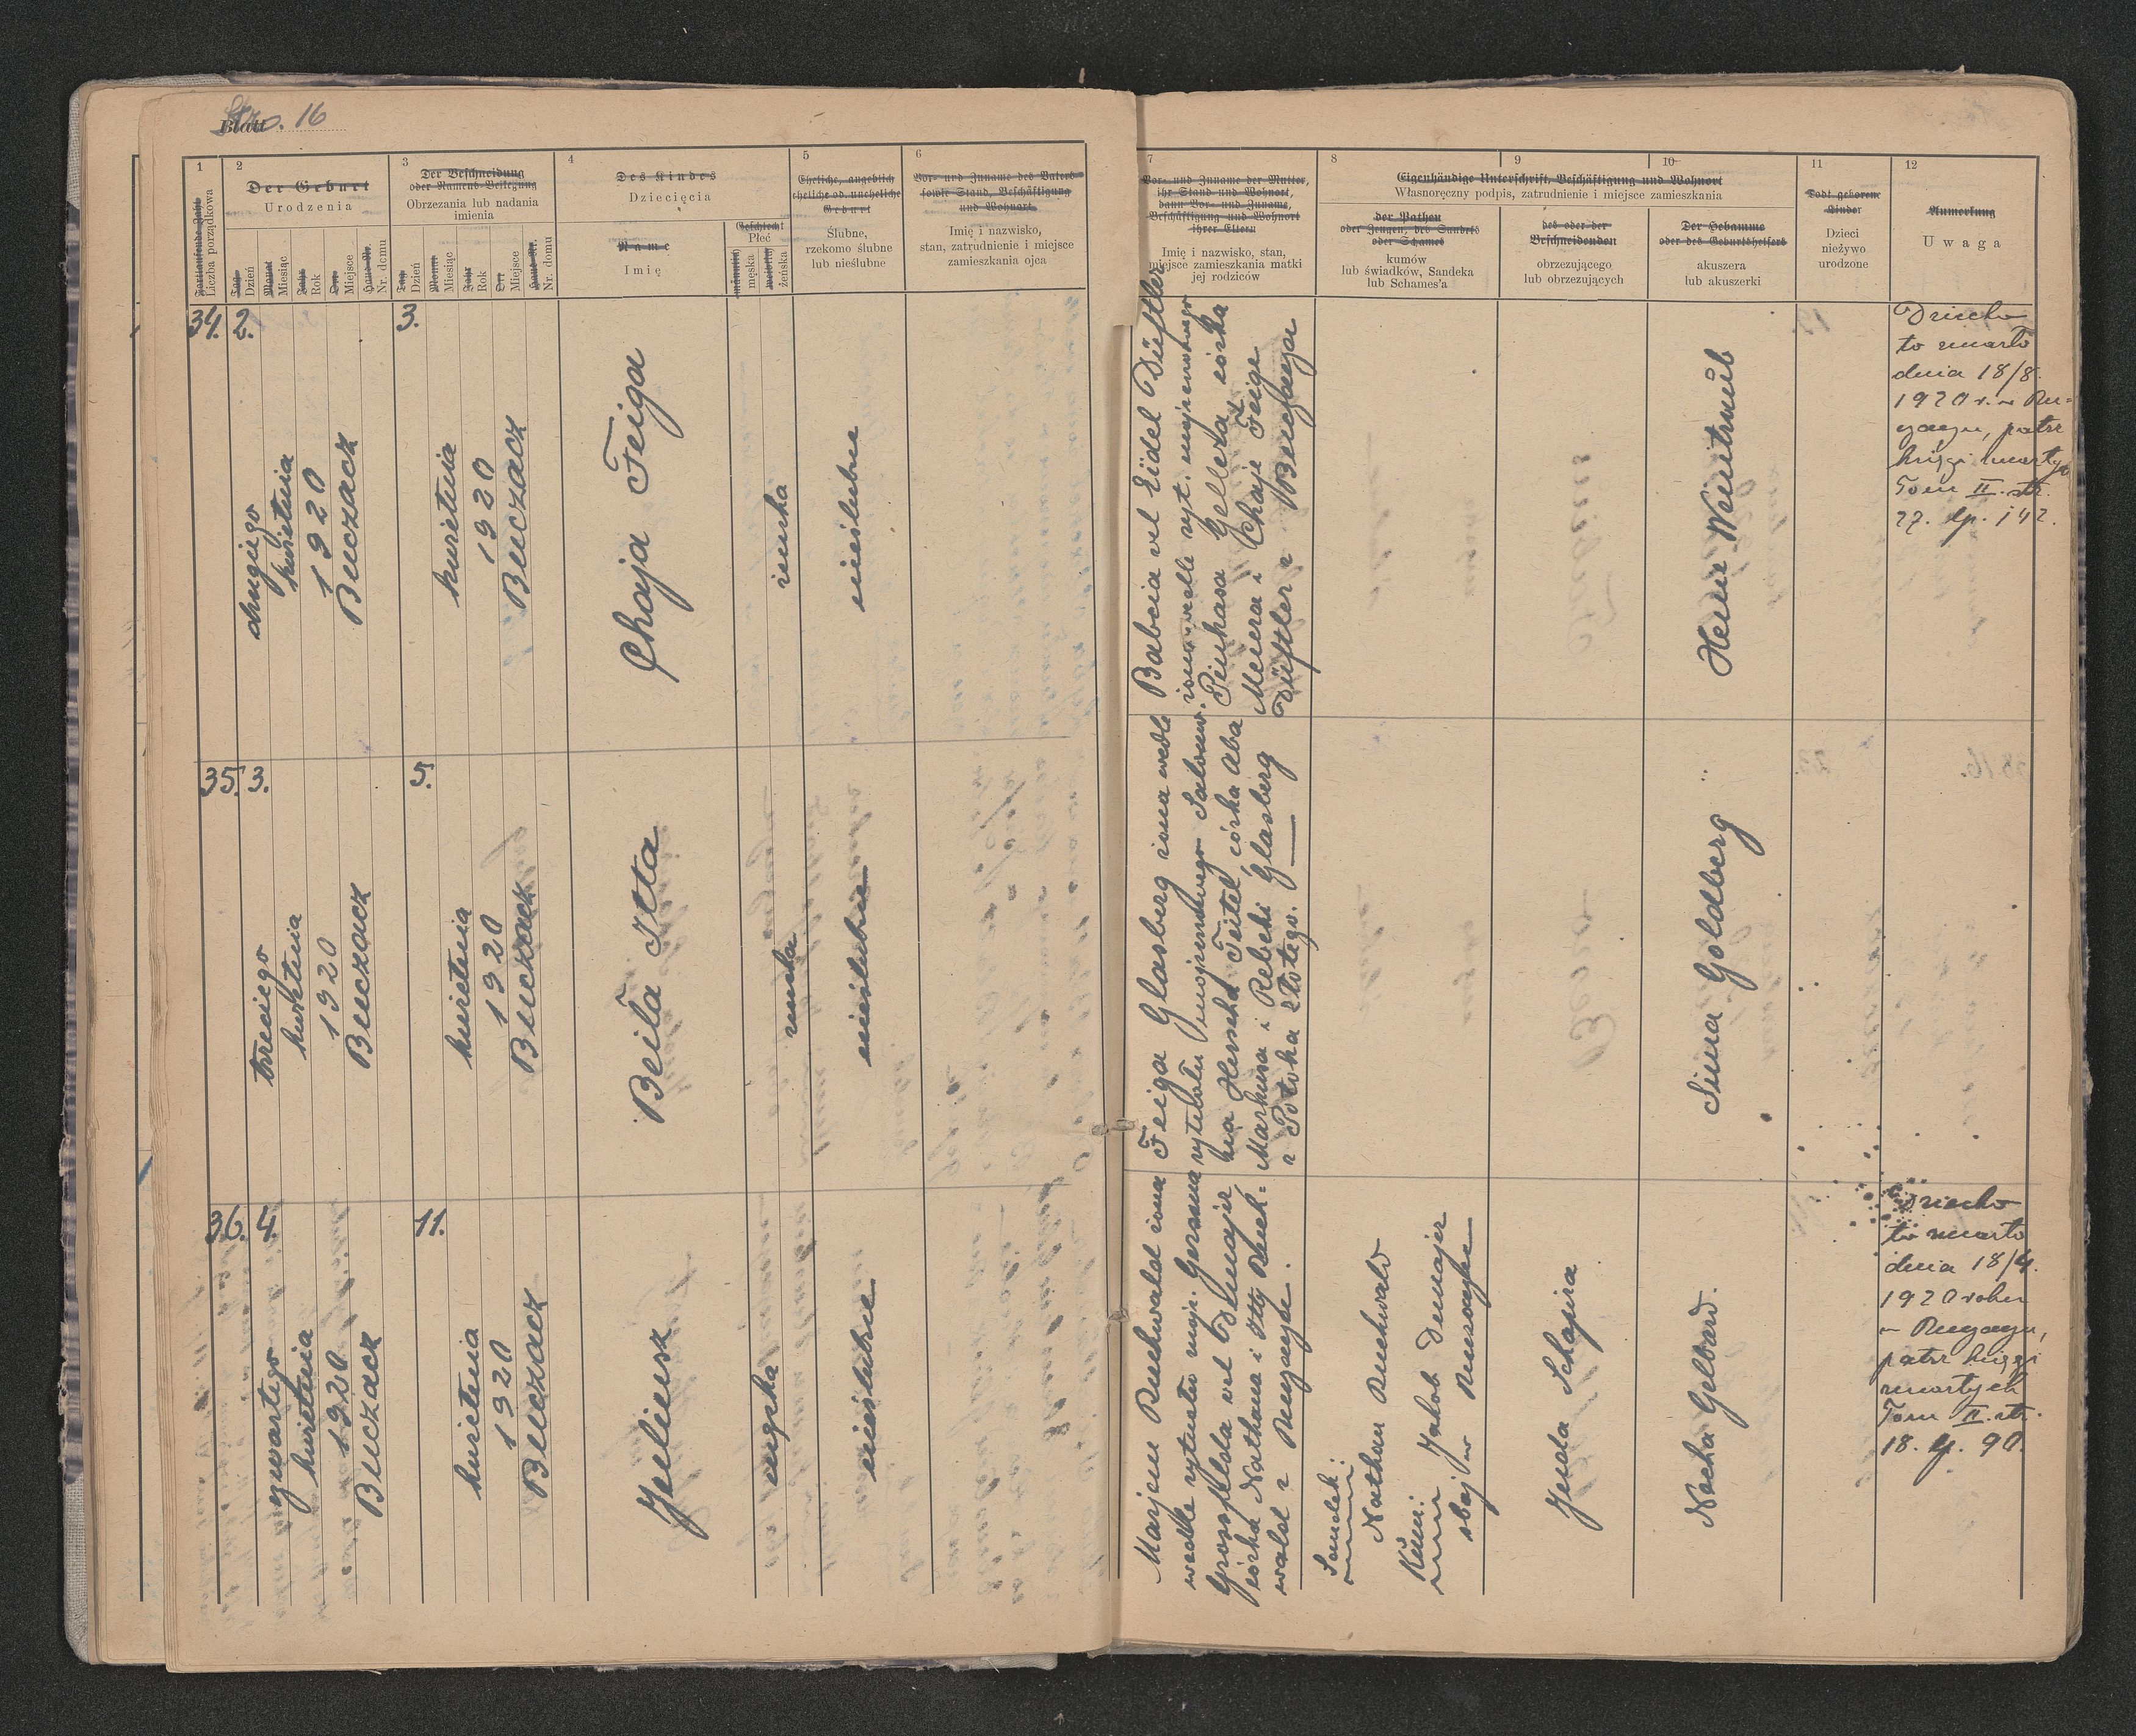 Stro. 16
Blatt
1
2
Der Geburt
Urodzenia
3
Der Beschneidung
oder Namens-Beilegung
Obrzezania lub nadania
imienia
4
Des Kindes
Dziecięcia
5
Eheliche, angeblich
eheliche od. uneheliche
Geburt
Ślubne,
rzekomo ślubne
lub nieślubne
6
Vor- und Zuname des Vaters
sowie Stand, Beschäftigung
und Wohnort
Imię i nazwisko,
stan, zatrudnienie i miejsce
zamieszkania ojca
Fortlaufende Zahl
Liczba porządkowa
Tag
Dzień
Monat
Miesiąc
Jahr
Rok
Ort
Miejsce
Haus-Nr.
Nr. domu
Tag
Dzień
Monat
Miesiąc
Jahr
Rok
Ort
Miejsce
Haus-Nr.
Nr. domu
Name
Imię
Geschlecht
Płeć
männlich
męska
weiblich
żeńska
7
Vor- und Zuname der Mutter,
ihr Stand und Wohnort,
dann Vor- und Zuname,
Beschäftigung und Wohnort
ihrer Eltern
Imię i nazwisko, stan,
miejsce zamieszkania matki
jej rodziców
8
9
10
Eigenhändige Unterschrift, Beschäftigung und Wohnort
Własnoręczny podpis, zatrudnienie i miejsce zamieszkania
der Pathen
oder Zeugen, des Sandeks
oder Schames
kumów
lub świadków, Sandeka
lub Schames'a
des oder der
Beschneidenden
obrzezującego
lub obrzezujących
Der Hebamme
oder des Geburtshelfers
akuszera
lub akuszerki
11
Todt geborene
Kinder
Dzieci
nieżywo
urodzone
12
Anmerkung
Uwaga
34.
2.
drugiego
kwietnia
1920
Buczacz
3.
kwietnia
1920
Buczacz
Chaja Feiga
żeńska
nieślubne
Babcia vel Eidel Düftler
żona wedle ryt. mojżeszowego
Pinkhasa Gellera, córka
Meiera i Chaje Feige
Düftler z Buczacza
Dziecko
to zmarło
dnia 18/8.
1920 r. w Bu-
czaczu, patrz
księgi zmartych
Tom II. str.
27. lp. 142.
35.
3.
trzeciego
kwietnia
1920
Buczacz
5.
kwietnia
1920
Buczacz
Beila Itta
żeńska
nieślubne
Feiga Glasberg żona wedle
rytuału mojżeszowego Salomo-
na Herscha Teitel, córka Aba
Markusa i Rebeki Glasberg
z Potoka złotego.
Sima Goldberg
36.
4.
czwartego
kwietnia
1920
Buczacz
11.
kwietnia
1920
Buczacz
Juliusz
męska
nieślubne
Marjem Buchwald żona
wedle rytuału mojż. Gerszona
córka Nathana i Itty Buch-
wald z Buczacza.
Sandek:
Nathan Buchwald
Kum:
Jakob
obaj w Buczaczu
Juda Schapira
Nacha Gelbard.
Dziecko
to zmarło
dnia 18/4.
1920 roku
w Buczaczu,
patrz księgi
zmartych
Tom II. str.
18. lp. 90.